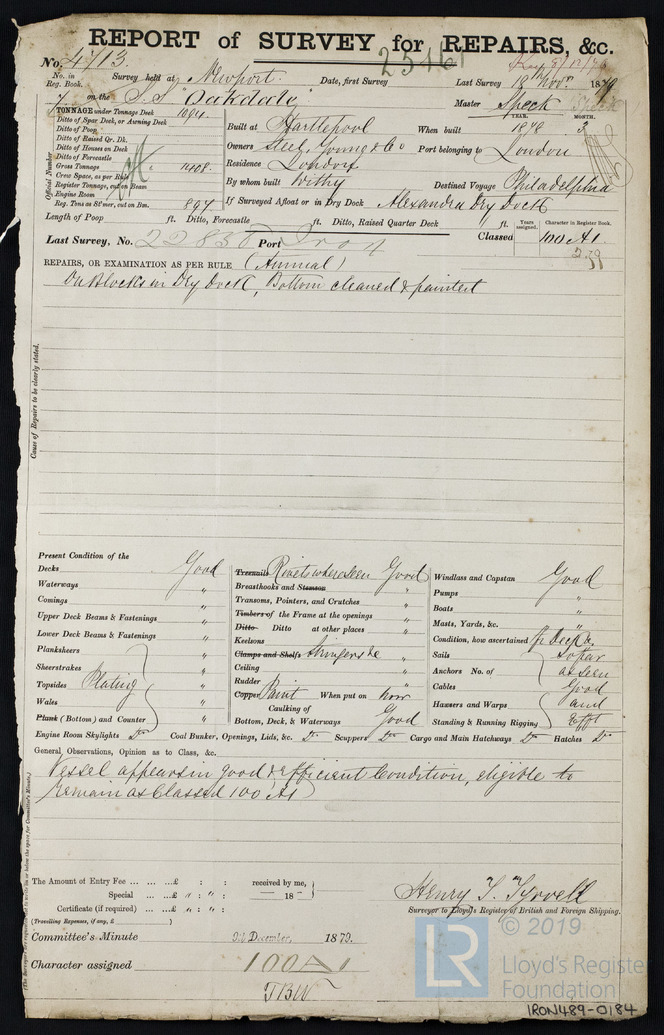 REPORT of SURVEY for REPAIRS, &c.
No. 4713.
No. in Reg. Book. Survey held at Newport. Date, first Survey Last Survey 18th Novr. 1879
7 on the S.S. "Oakdale" Master Speck
TONNAGE under Tonnage Deck 1094
Ditto of Spar Deck, or Awning Deck
Ditto of Poop
Ditto of Raised Qr. Dk.
Ditto of Houses on Deck
Ditto of Forecastle
Gross Tonnage 1408.
Crew Space, as per Rule
Register Tonnage, cut on Beam
Engine Room
Reg. Tons as St'mer, cut on Bm. 897
Official Number
Built at Hartlepool When built YEAR. 1878 MONTH. 3
Owners Steel, Young & Co Port belonging to London
Residence London
By whom built Withy Destined Voyage Philadelphia
If Surveyed Afloat or in Dry Dock Alexandra Dry Dock
Length of Poop ft. Ditto, Forecastle ft. Ditto, Raised Quarter Deck ft.
Last Survey, No. 22836 Port Iron Classed Years assigned. Character in Register Book. 100 A1.
2.79
REPAIRS, OR EXAMINATION AS PER RULE (Annual)
On Blocks in Dry Dock, Bottom cleaned & painted
Cause of Repairs to be clearly stated.
Present Condition of the
Decks Good
Waterways "
Comings "
Upper Deck Beams & Fastenings "
Lower Deck Beams & Fastenings "
Planksheers "
Sheerstrakes "
Topsides Plating "
Wales "
Plank (Bottom) and Counter "
Treenails Rivets where seen Good
Breasthooks and Stemson "
Transoms, Pointers, and Crutches "
Timbers of the Frame at the openings "
Ditto Ditto at other places "
Keelsons "
Clamps and Shelfs Stringers &c "
Ceiling "
Rudder "
Copper Paint When put on now
Caulking of
Bottom, Deck, & Waterways Good
Windlass and Capstan Good
Pumps "
Boats "
Masts, Yards, &c. "
Condition, how ascertained
Sails so far
Anchors No. of as seen
Cables Good
Hawsers and Warps and
Standing & Running Rigging Efft
Engine Room Skylights Do Coal Bunker, Openings, Lids, &c. Do Scuppers Do Cargo and Main Hatchways Do Hatches Do
General Observations, Opinion as to Class, &c.
Vessel appears in good & efficient Condition, eligible to
remain as Classed 100 A1
The Amount of Entry Fee ... ... ...£ : : received by me,
Special ... ...£ " : " : — 18 —
Certificate (if required) ... ...£ " : " :
(Travelling Expenses, if any, £ )
Henry T. Tyrrell
Surveyor to Lloyd's Register of British and Foreign Shipping.
Committee's Minute 9th December, 1879.
Character assigned 100 A 1
© 2019
LR
Lloyd's Register
Foundation
IRON489-0184